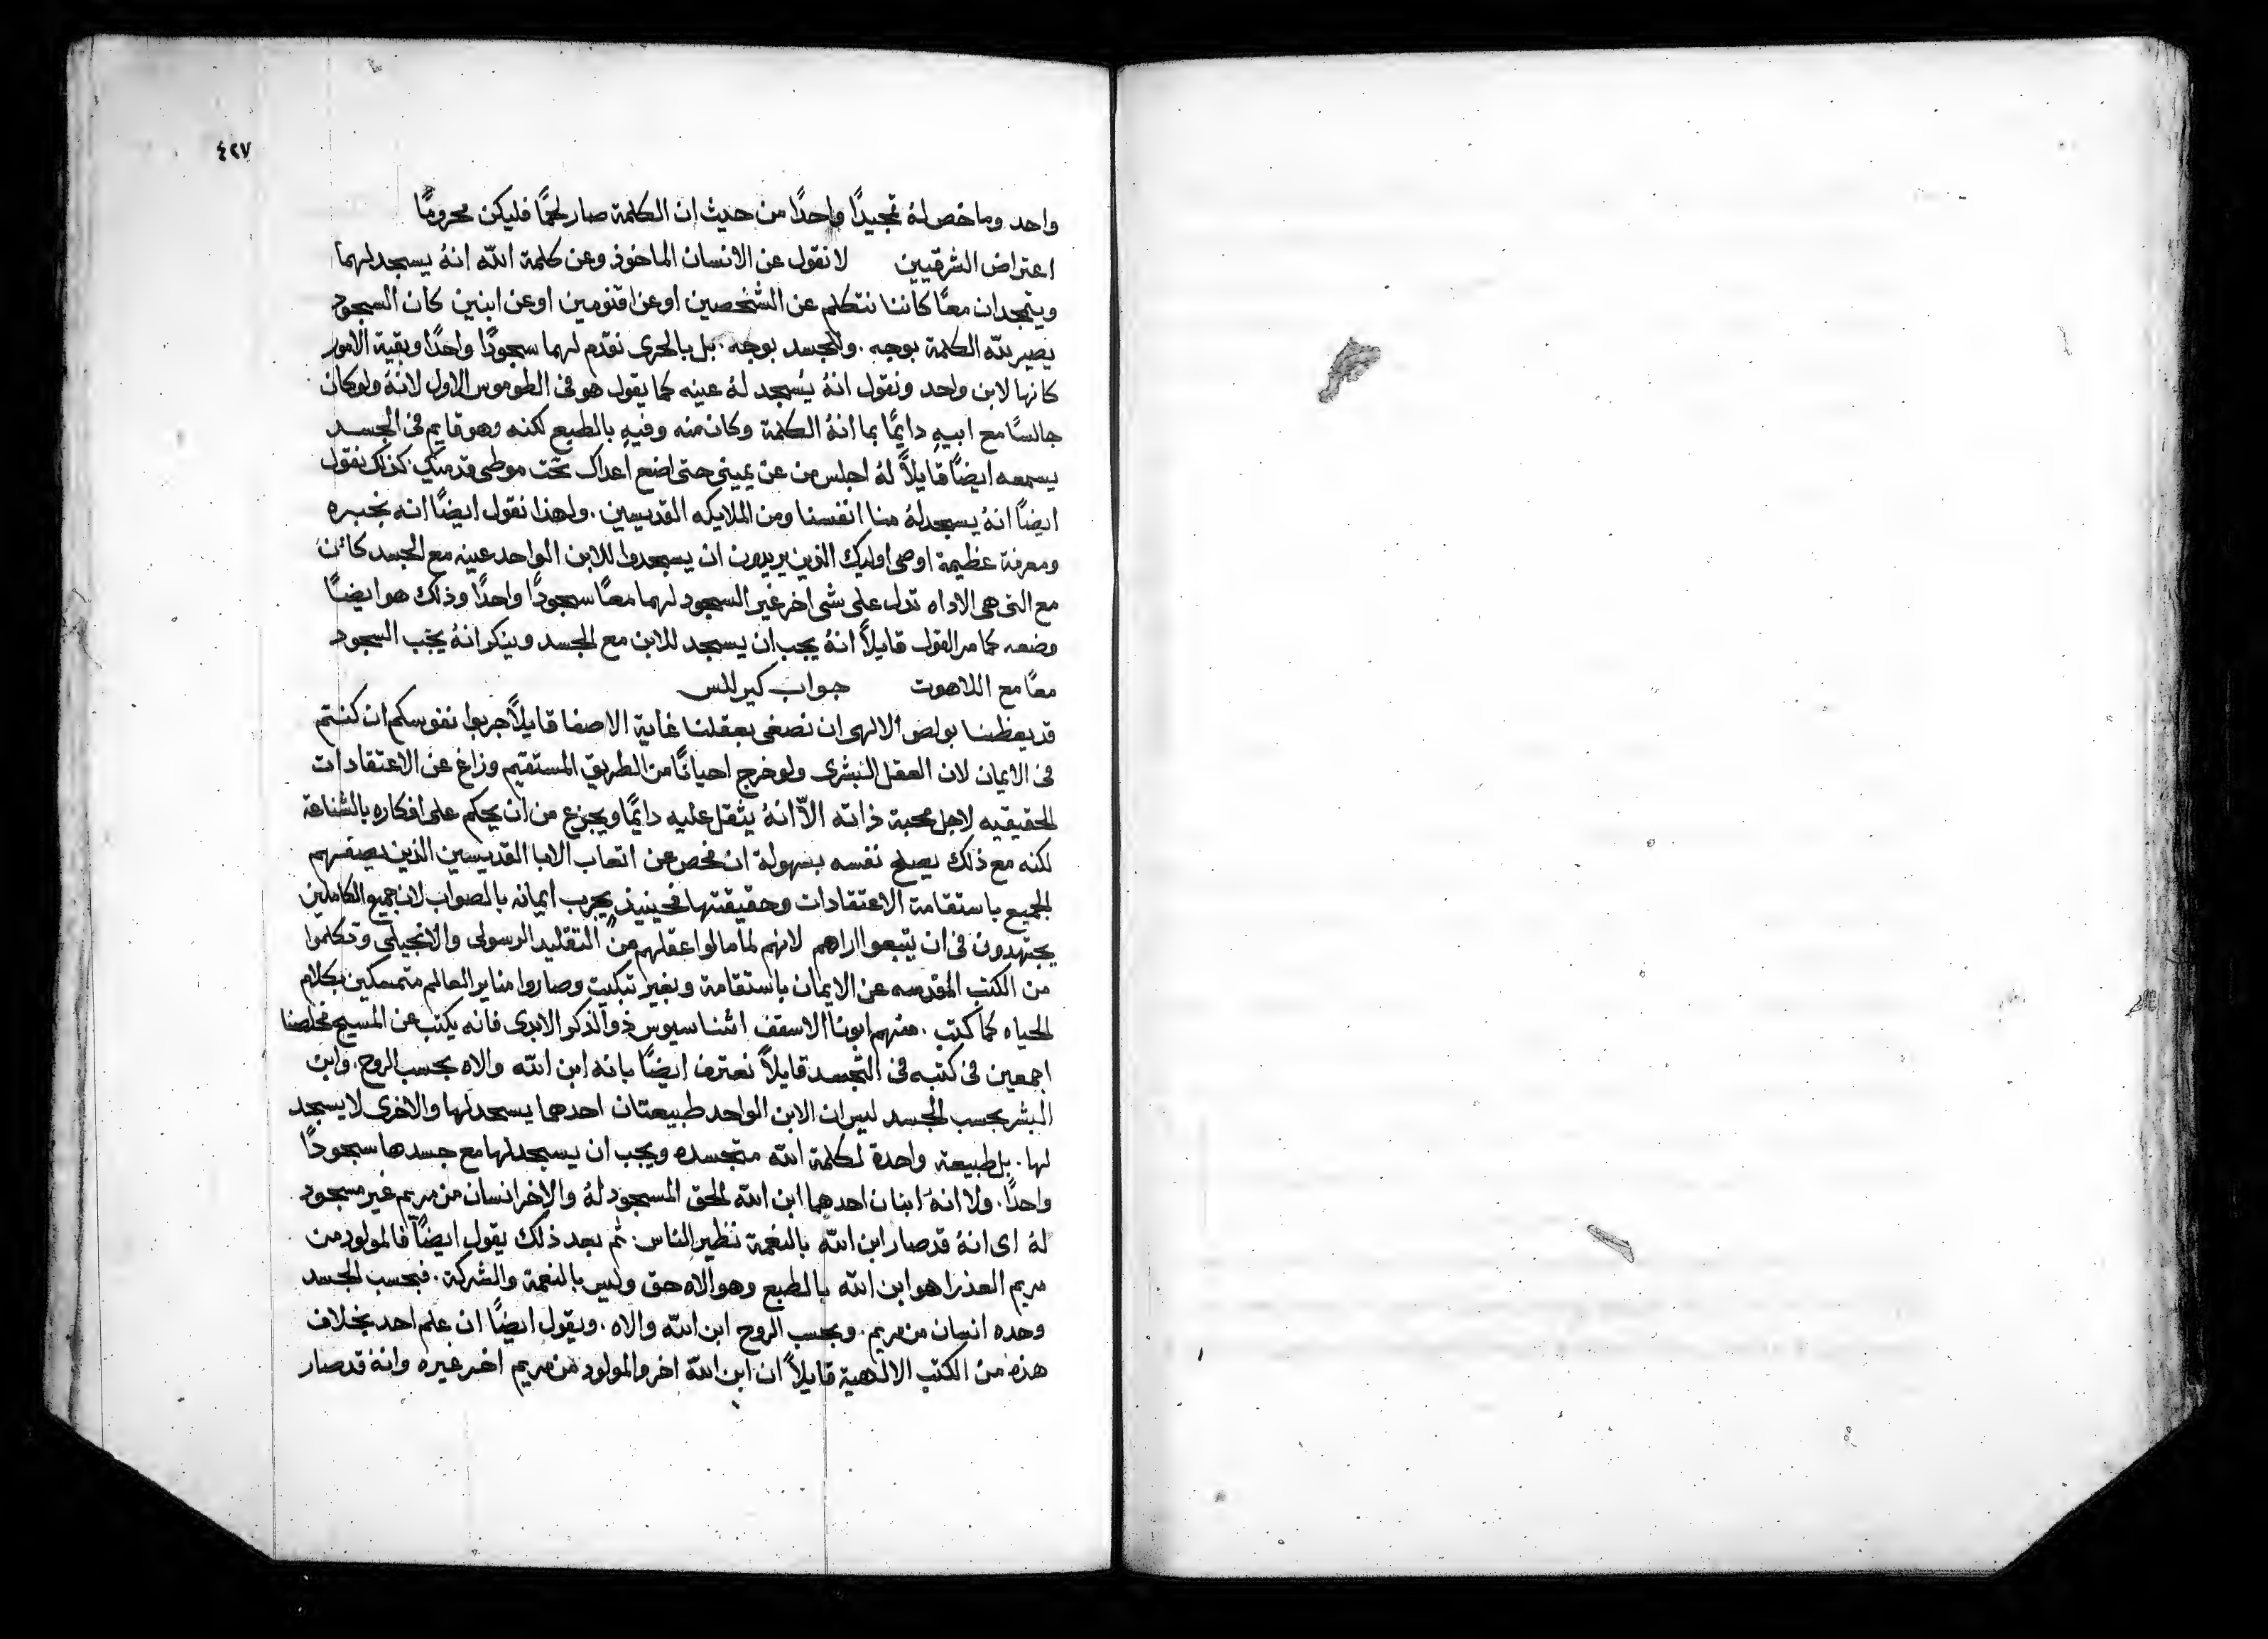 ٤٢٧
واحد وما خص له تمجيدًا واحدًا من حيث ان الكلمة صار لحمًا فليكن محرومًا
اعتراض الشرقيين لا نقول عن الانسان الماخوذ وعن كلمة الله انهُ يسجد لهما
ويتمجدان معًا كاننا نتكلم عن الشخصين او عن اقنومين او عن ابنين كان السجود
يصير لله الكلمة بوجه . وللجسد بوجه . بل بالحرى نقدم لهما سجودًا واحدًا وبقية الامور
كانها لابن واحد ونقول انهُ يُسجد لهُ عينه كما يقول هو فى الطوموس الاول لانهُ ولو كان
جالسًا مع ابيهِ دايمًا بما انهُ الكلمة وكان منه وفيهِ بالطبع لكنه وهو قايم فى الجسد
يسمعه ايضًا قايلاً لهُ اجلس من عن يمينى حتى اضع اعداك تحت موطى قدميك . كذلك نقول
ايضًا انهُ يسجد لهُ منا انفسنا ومن الملايكه القديسين . ولهذا نقول ايضًا انه بخبره
ومعرفة عظيمة اوصى اوليك الذين يريدون ان يسجدوا للابن الواحد عينه مع الجسد كان
مع التى هى الاداه تدل على شى اخر غير السجود لهما معًا سجودًا واحدًا وذلك هو ايضًا
وضعه كما مر القول قايلاً انهُ يجب ان يسجد للابن مع الجسد وينكر انهُ يجب السجود
معًا مع اللاهوت جواب كيرللس
قد يعظنا بولص الالهى ان نصغى بعقلنا غاية الاصغا قايلاً جربوا نفوسكم ان كنتم
فى الايمان لان العقل البشرى ولو خرج احيانًا من الطريق المستقيم وزاغ عن الاعتقادات
الحقيقيه لاجل محبة ذاته الاّ انهُ يثقل عليه دايمًا ويجزع من ان يحكم على افكاره بالشناعة
لكنه مع ذلك يصلح نفسه بسهولة ان فحص عن اتعاب الابا القديسين الذين يصفهم
الجميع باستقامة الاعتقادات وحقيقتها فحينيذٍ يجرب ايمانه بالصواب لان جميع الكاملين
يجتهدون فى ان يتبعوا اراهم لانهم لما مالوا عقلهم من التقليد الرسولى والانجيلى وتكلموا
من الكتب المقدسه عن الايمان باستقامة وبغير تبكيت وصاروا مناير العالم متمسكين بكلام
الحياه كما كتب . منهم ابونا الاسقف اثناسيوس ذو الذكر الابدى فانه يكتب عن المسيح مخلصنا
اجمعين فى كتبه فى التجسد قايلاً نعترف ايضًا بانه ابن الله والاه بحسب الروح . وابن
البشر بحسب الجسد ليس ان الابن الواحد طبيعتان احدهما يسجد لها والاخرى لا يسجد
لها . بل طبيعة واحدة لكلمة الله متجسده ويجب ان يسجد لها مع جسدها سجودًا
واحدًا . ولا انهَ ابنان احدهما ابن الله الحق المسجود لهُ والاخر انسان من مريم غير مسجود
لهُ اى انهُ قد صار ابن الله بالنعمة نظير الناس . ثم بعد ذلك يقول ايضًا فالمولود من
مريم العذرا هو ابن الله بالطبع وهو الاه حق وليس بالنعمة والشركة . فبحسب الجسد
وحده انسان من مريم . وبحسب الروح ابن الله والاه . ويقول ايضًا ان علم احد بخلاف
هذه من الكتب الالهية قايلاً ان ابن الله اخر والمولود من مريم اخر غيره وانهُ قد صار